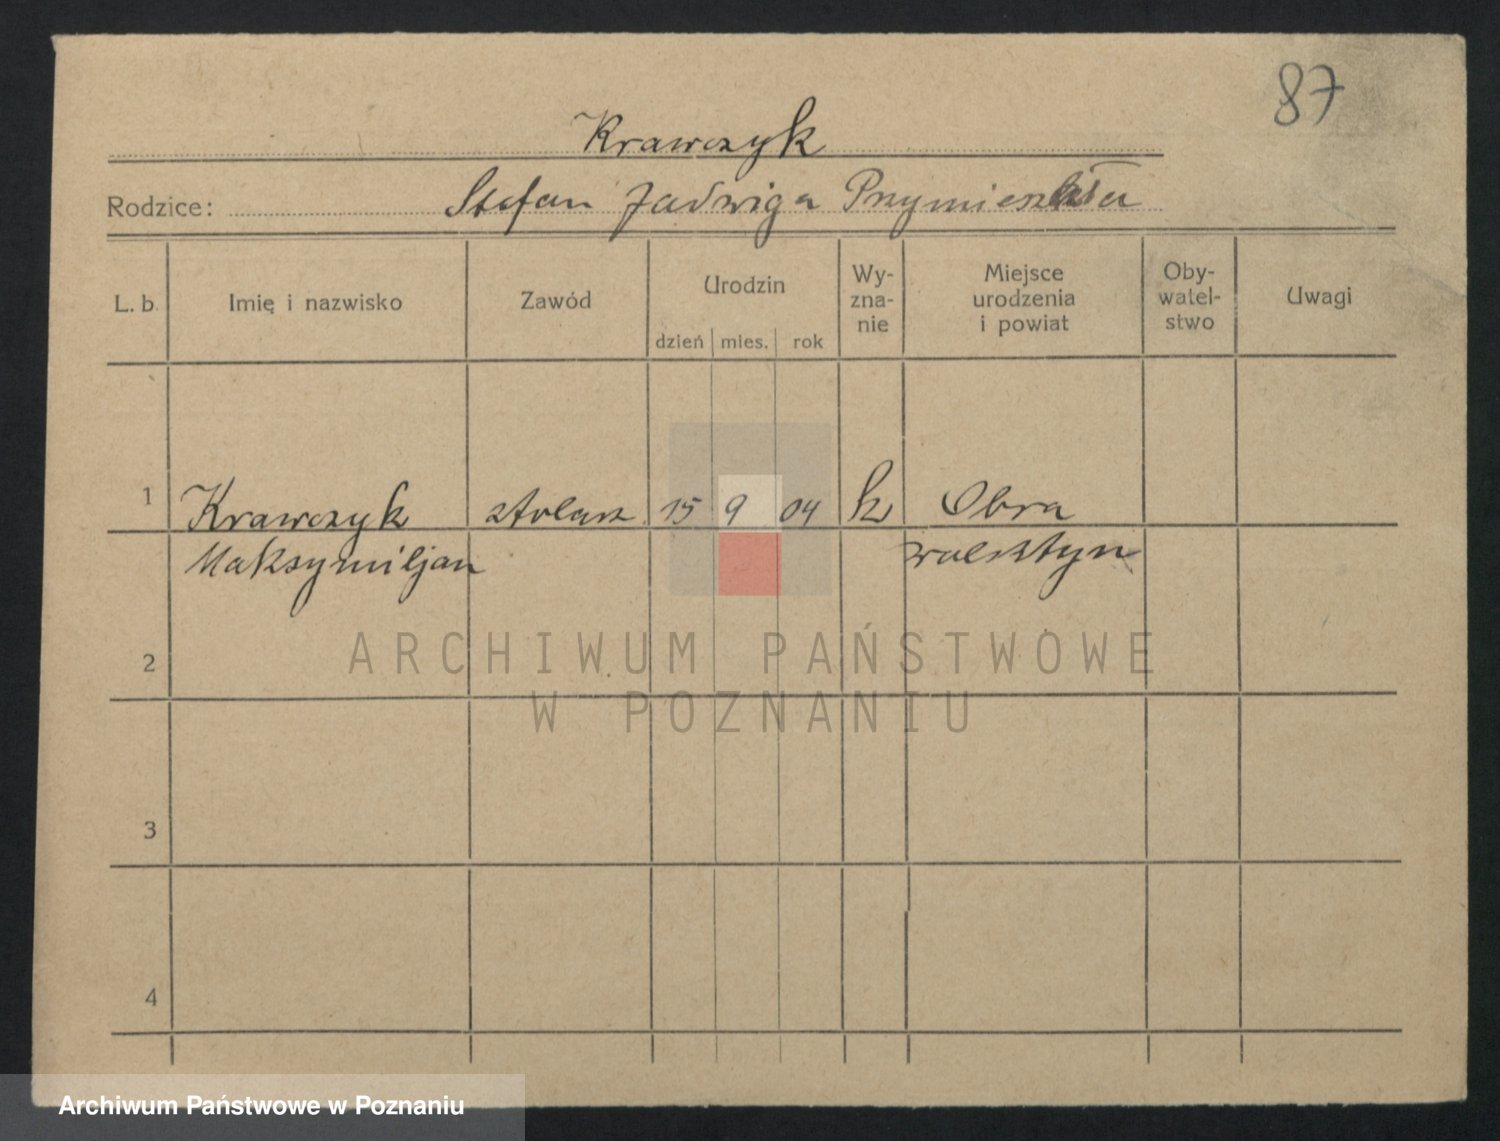 87
Krawczyk
Rodzice: Stefan Jadwiga
L. b. Imię i nazwisko Zawód Urodzin dzień mies. rok Wy-zna-nie Miejsce urodzenia i powiat Oby-watel-stwo Uwagi
1 Krawczyk stolarz 15 9 04 k Obra
Maksymiljan wolsztyn
2
ARCHIWUM PAŃSTWOWE
W POZNANIU
3
4
Archiwum Państwowe w Poznaniu